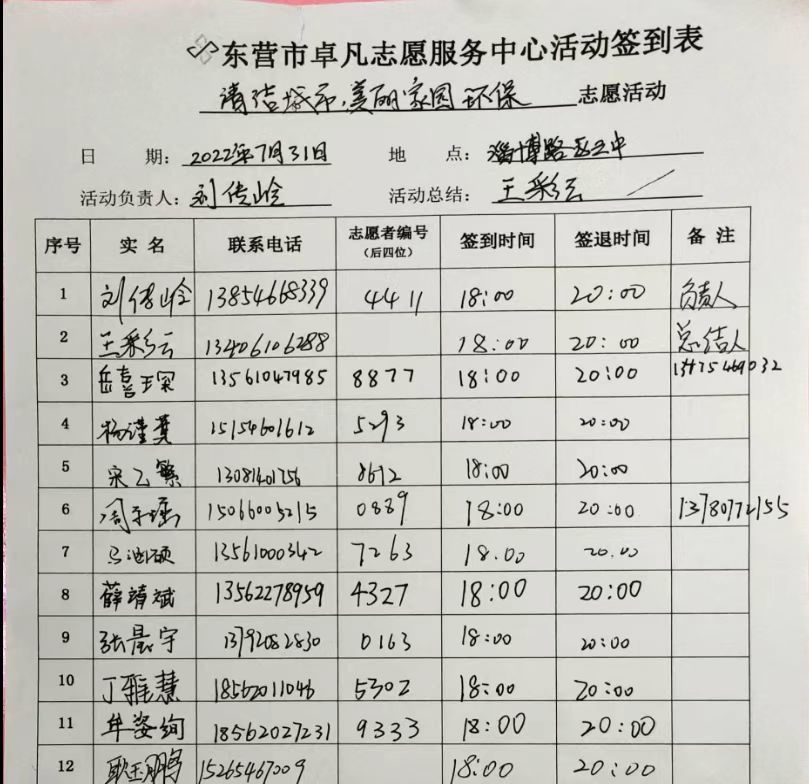 东营市卓凡志愿服务中心活动签到表
清洁城市,美丽家园 环保 志愿活动
日 期: 2022年7月31日 地 点: 淄博路
活动负责人: 刘传岭 活动总结: 王彩云
序号 实名 联系电话 志愿者编号（后四位） 签到时间 签退时间 备注
1 刘传岭 13854668339 4411 18:00 20:00 负责人
2 王彩云 13406106288 18:00 20:00 总结人
3 岳喜琛 13561047985 8877 18:00 20:00 13475469032
4 杨谨萁 15154601612 5293 18:00 20:00
5 宋乙繁 13081401756 8612 18:00 20:00
6 周子瑶 15066005215 0889 18:00 20:00 13780772155
7 马 13561000342 7263 18.00 20.00
8 薛靖斌 13562278959 4327 18:00 20:00
9 张晨宇 13792082830 0163 18:00 20:00
10 丁雅慧 18562011046 5302 18:00 20:00
11 牟姿绚 18562027231 9333 18:00 20:00
12 耿玉鹏 15265467009 18:00 20:00